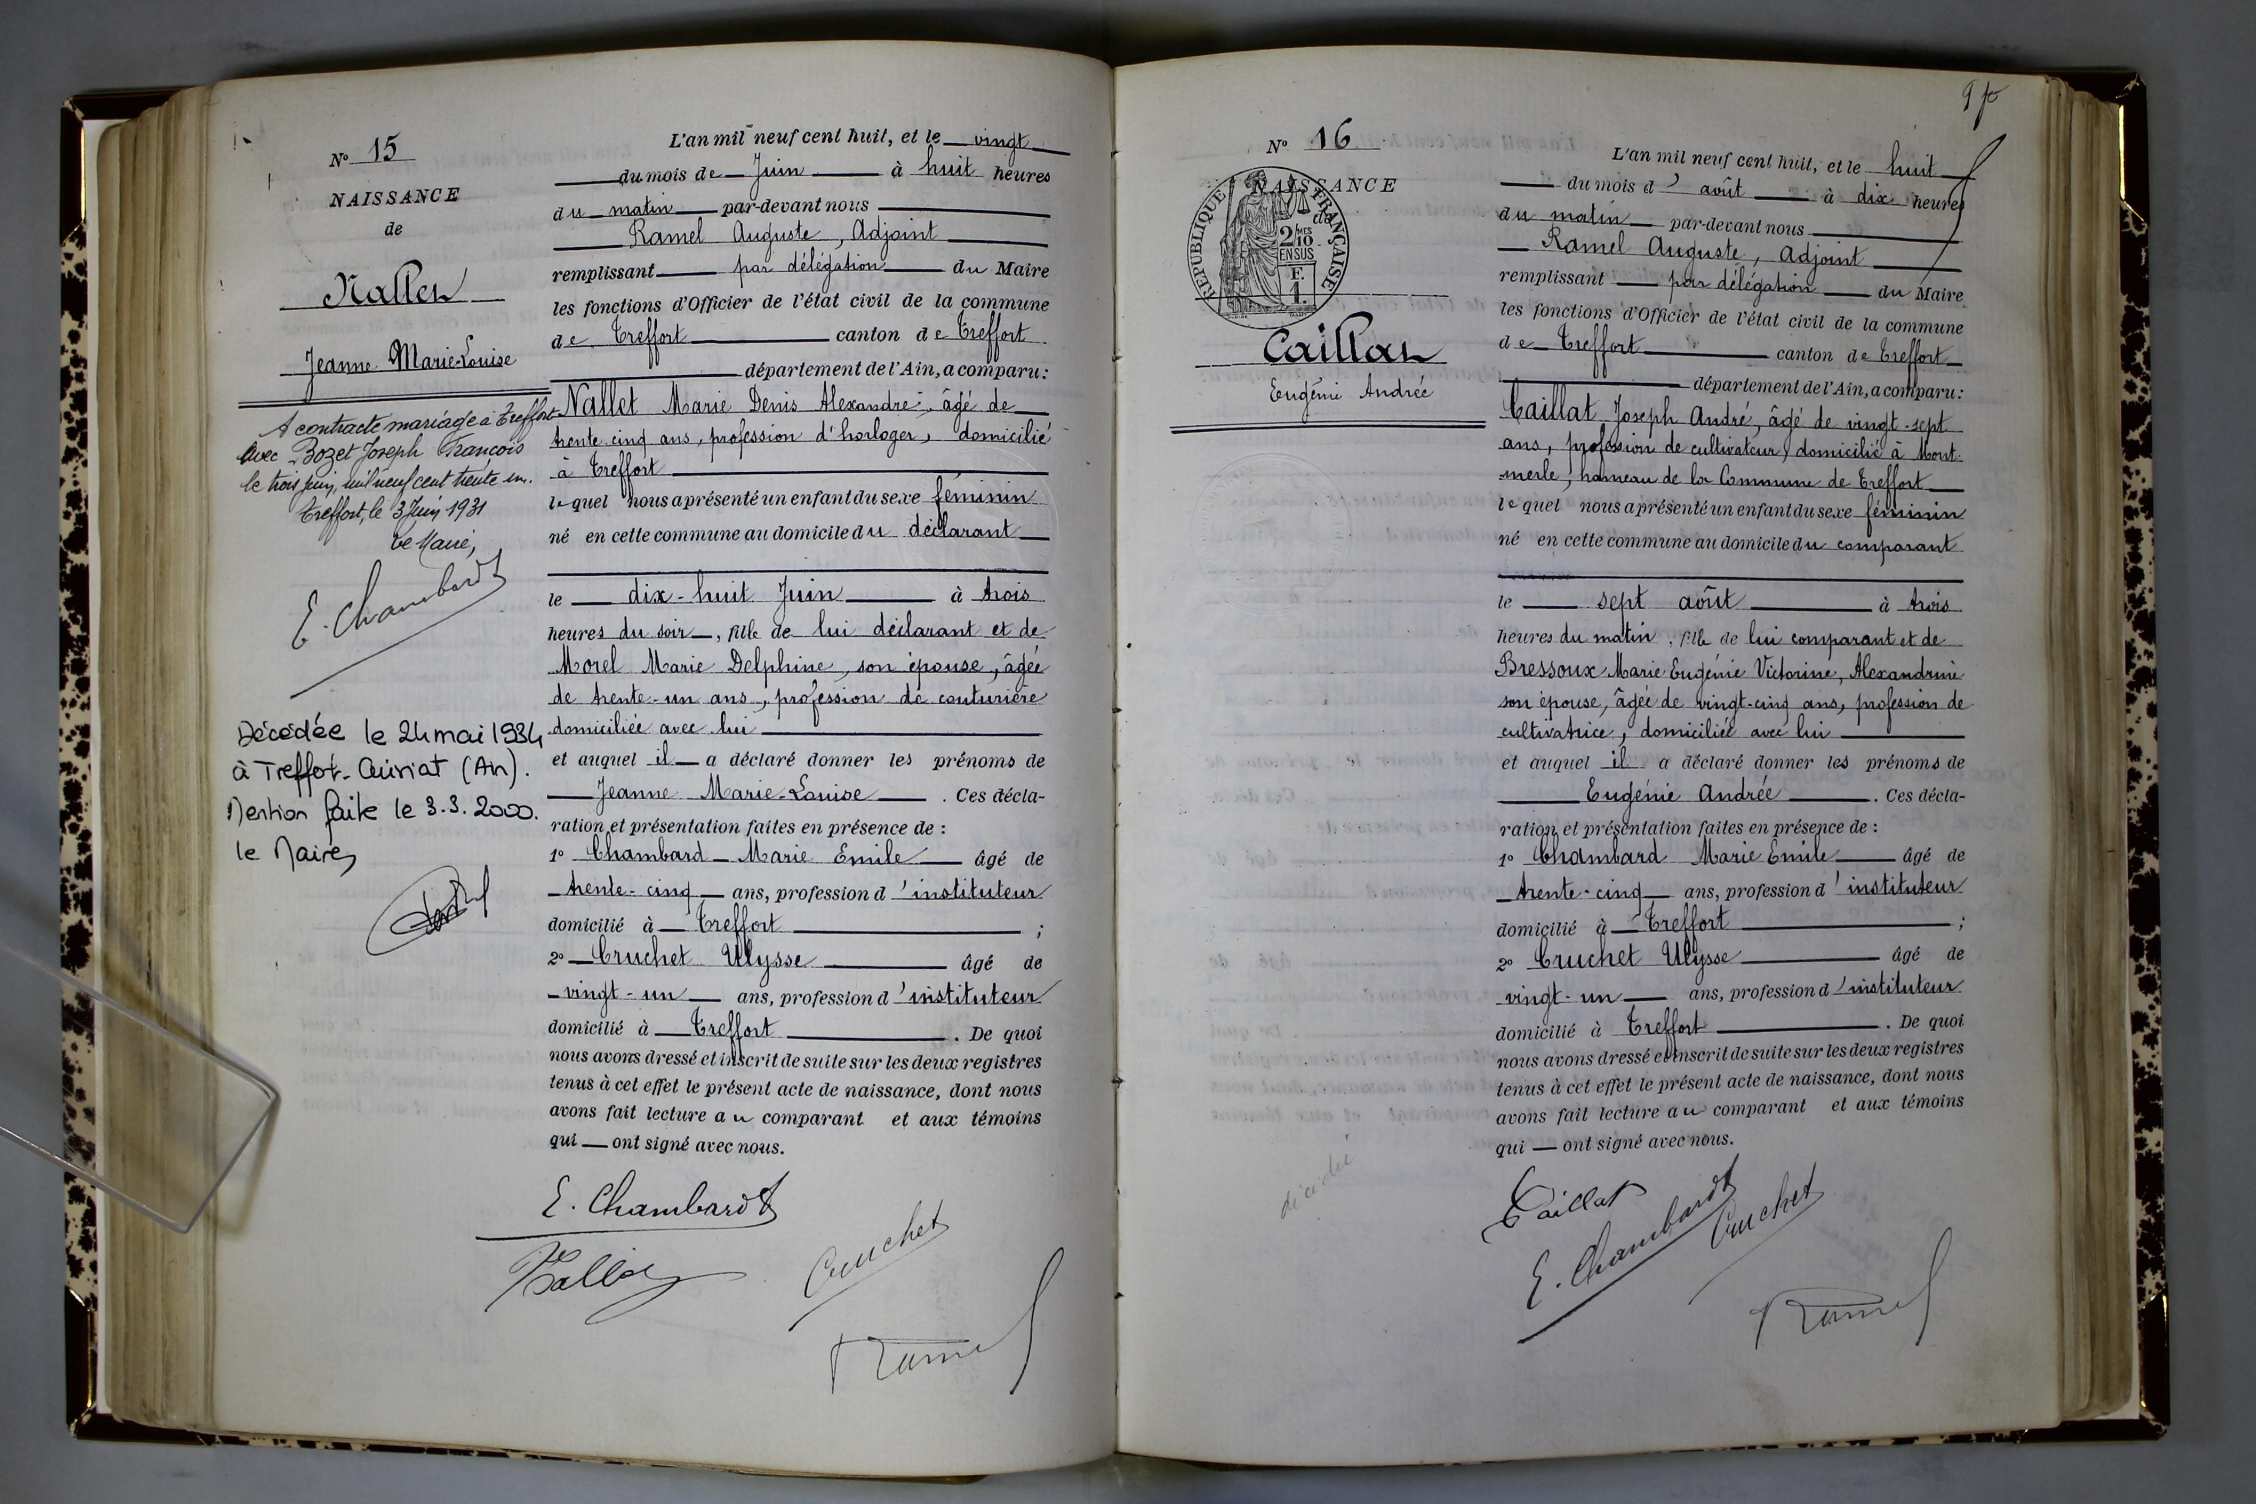 N° 15
NAISSANCE
de
Nallet
Jeanne Marie-Louise
A contracté mariage à Treffort
avec Bozet Joseph François
le trois juin, mil neuf cent trente un.
Treffort, le 3 Juin 1931
Le Maire,
E. Chambard
Décédée le 24 mai 1984
à Treffort-Cuisiat (Ain).
Mention faite le 3.3.2000.
le Maire,
L'an mil neuf cent huit, et le vingt
du mois de Juin à huit heures
du matin par-devant nous
Ramel Auguste, Adjoint
remplissant par délégation du Maire
les fonctions d'Officier de l'état civil de la commune
de Treffort canton de Treffort
département de l'Ain, a comparu:
Nallet Marie Denis Alexandre, âgé de
trente cinq ans, profession d'horloger, domicilié
à Treffort
lequel nous a présenté un enfant du sexe féminin
né en cette commune au domicile du déclarant
le dix-huit Juin à trois
heures du soir, fille de lui déclarant et de
Morel Marie Delphine, son épouse, âgée
de trente-un ans, profession de couturière
domiciliée avec lui
et auquel il a déclaré donner les prénoms de
Jeanne Marie-Louise. Ces décla-
ration et présentation faites en présence de :
1° Chambard Marie Emile âgé de
trente-cinq ans, profession d'instituteur
domicilié à Treffort ;
2° Cruchet Ulysse âgé de
vingt-un ans, profession d'instituteur
domicilié à Treffort. De quoi
nous avons dressé et inscrit de suite sur les deux registres
tenus à cet effet le présent acte de naissance, dont nous
avons fait lecture au comparant et aux témoins
qui ont signé avec nous.
E. Chambard
Nallet
Cruchet
Ramel
N° 16
NAISSANCE
de
RÉPUBLIQUE FRANÇAISE
2/10 EN SUS
E.
1.
Caillat
Eugénie Andrée
décédée
L'an mil neuf cent huit, et le huit
du mois d'août à dix heures
du matin par-devant nous
Ramel Auguste, Adjoint
remplissant par délégation du Maire
les fonctions d'Officier de l'état civil de la commune
de Treffort canton de Treffort
département de l'Ain, a comparu:
Caillat Joseph André, âgé de vingt-sept
ans, profession de cultivateur, domicilié à Mont-
merle, hameau de la Commune de Treffort
lequel nous a présenté un enfant du sexe féminin
né en cette commune au domicile du comparant
le sept août à trois
heures du matin, fille de lui comparant et de
Bressoux Marie Eugénie Victorine, Alexandrine
son épouse, âgée de vingt-cinq ans, profession de
cultivatrice, domiciliée avec lui
et auquel il a déclaré donner les prénoms de
Eugénie Andrée. Ces décla-
ration et présentation faites en présence de :
1° Chambard Marie Emile âgé de
trente-cinq ans, profession d'instituteur
domicilié à Treffort ;
2° Cruchet Ulysse âgé de
vingt-un ans, profession d'instituteur
domicilié à Treffort. De quoi
nous avons dressé et inscrit de suite sur les deux registres
tenus à cet effet le présent acte de naissance, dont nous
avons fait lecture au comparant et aux témoins
qui ont signé avec nous.
Caillat
E. Chambard
Cruchet
Ramel